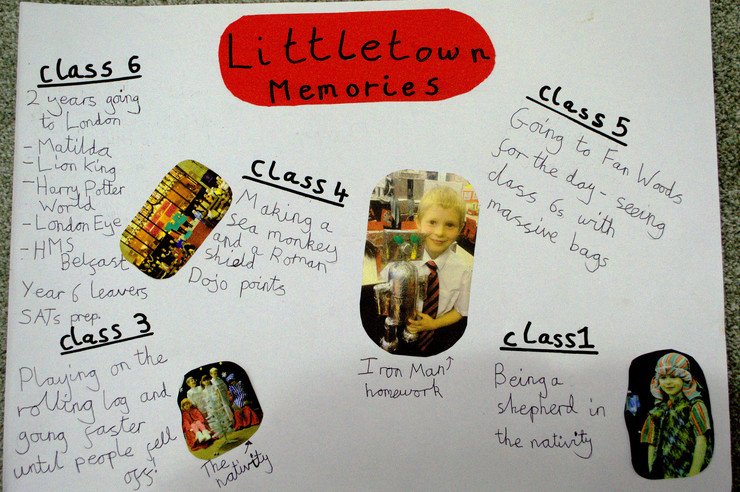 Littletown
Memories
class 6
2 years going
to London
- Matilda
- Lion King
- Harry Potter
World
- London Eye
- HMS
Belfast
Year 6 leavers
SATs prep.
class 4
Making a
sea monkey
and a Roman
shield
Dojo points
class 5
Going to Fan Woods
for the day - seeing
class 6s with
massive bags
class 3
Playing on the
rolling log and
going faster
until people fell
off!
The
nativity
Iron Man
homework
class1
Being a
shepherd in
the nativity